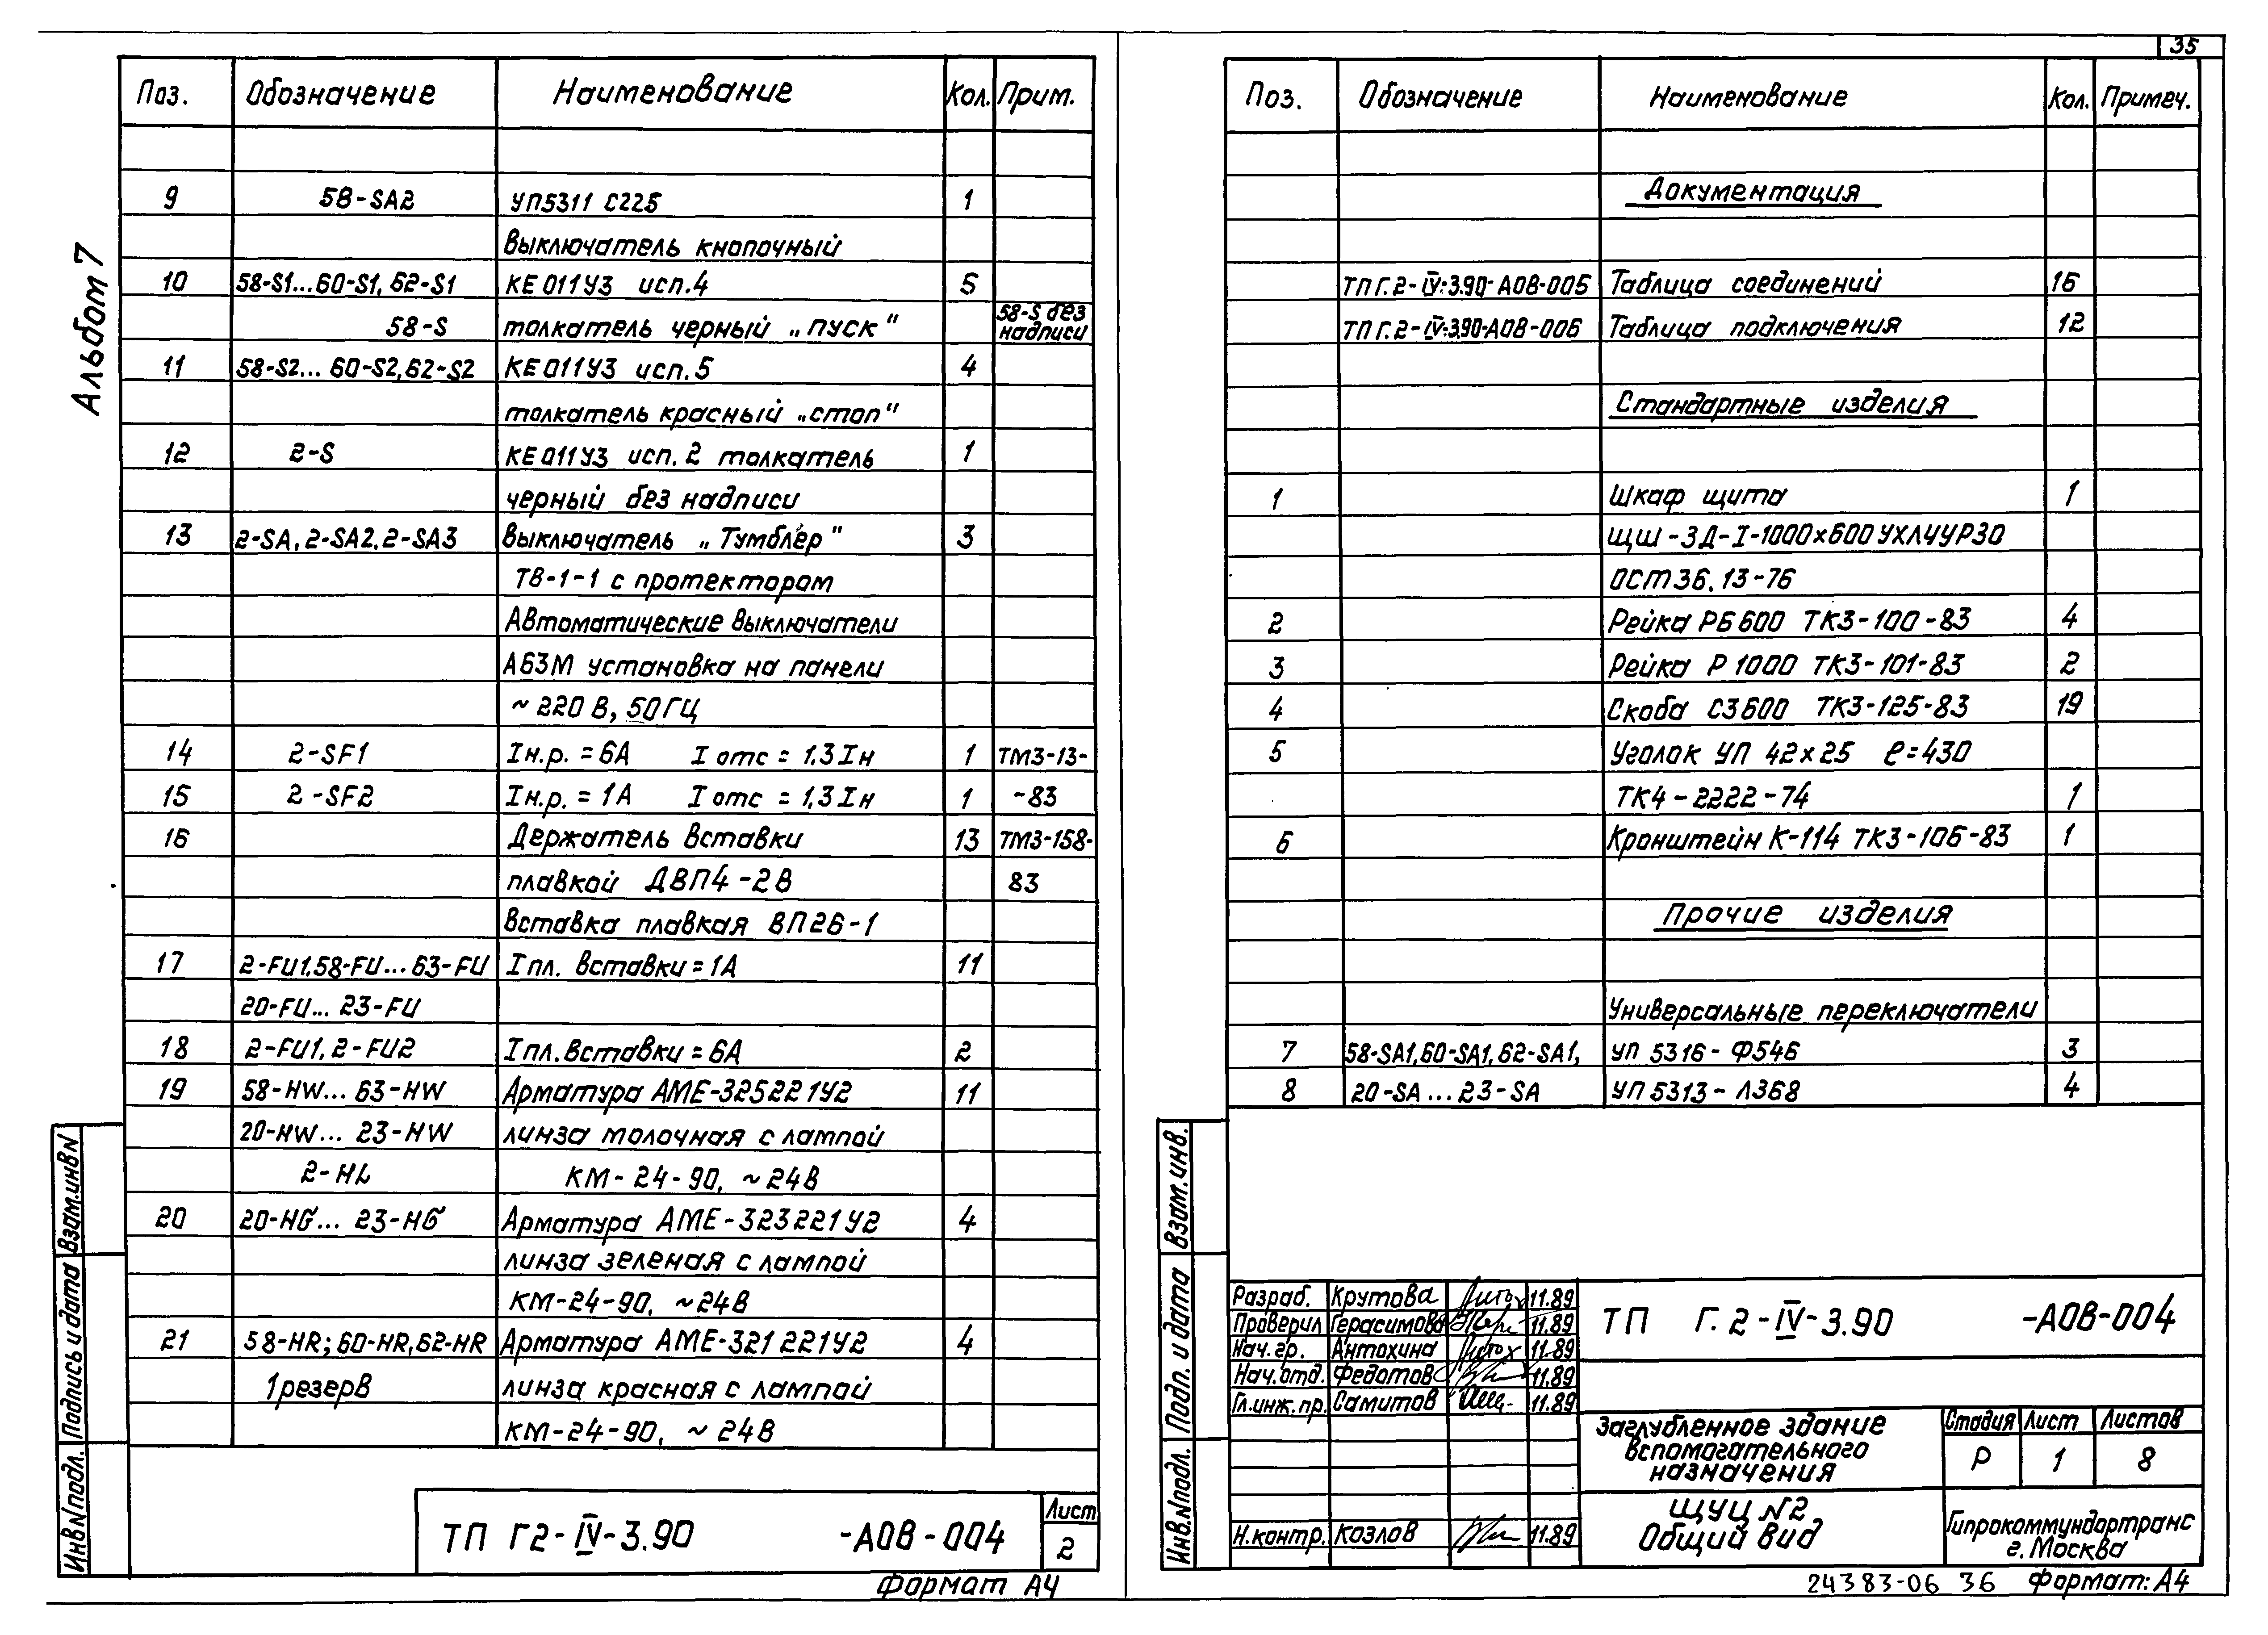 35
Альбом 7
Поз. Обозначение Наименование Кол. Прим.
9 58-SA2 УП5311 С225 1
Выключатель кнопочный
10 58-S1...60-S1, 62-S1 КЕ011У3 исп.4 5
58-S толкатель черный „пуск" 58-S без надписи
11 58-S2... 60-S2, 62-S2 КЕ011У3 исп.5 4
толкатель красный „стоп"
12 2-S КЕ011У3 исп. 2 толкатель 1
черный без надписи
13 2-SA, 2-SA2, 2-SA3 Выключатель „Тумблер" 3
ТВ-1-1 с протектором
Автоматические выключатели
А63М установка на панели
~ 220 В, 50 ГЦ
14 2-SF1 Iн.р. = 6А I отс = 1.3 Iн 1 ТМ3-13-
15 2-SF2 Iн.р. = 1А I отс = 1,3 Iн 1 -83
16 Держатель вставки 13 ТМ3-158-
плавкой ДВП4-2В 83
Вставка плавкая ВП2Б-1
17 2-FU1,58-FU...63-FU I пл. вставки = 1А 11
20-FU... 23-FU
18 2-FU1, 2-FU2 I пл. вставки = 6А 2
19 58-HW... 63-HW Арматура АМЕ-325221У2 11
20-HW... 23-HW линза молочная с лампой
2-HL КМ-24-90, ~24В
20 20-HG... 23-HG Арматура АМЕ-323221У2 4
линза зеленая с лампой
КМ-24-90, ~24В
21 58-HR; 60-HR, 62-HR Арматура АМЕ-321 221У2 4
1 резерв линза красная с лампой
КМ-24-90, ~ 24В
Взам.инвN
Подпись и дата
ИнвNподл.
ТП Г2-IV-3.90 -АОВ-004
Лист
2
Формат А4
Поз. Обозначение Наименование Кол. Примеч.
Документация
ТП Г.2-IV-3.90-АОВ-005 Таблица соединений 16
ТП Г.2-IV-3.90-АОВ-006 Таблица подключения 12
Стандартные изделия
1 Шкаф щита 1
ЩШ-3Д-I-1000х600 УХЛ4УР30
ОСТ36.13-76
2 Рейка РБ600 ТК3-100-83 4
3 Рейка Р1000 ТК3-101-83 2
4 Скоба С3600 ТК3-125-83 19
5 Уголок УП 42х25 ℓ=430
ТК4-2222-74 1
6 Кронштейн К-114 ТК3-106-83 1
Прочие изделия
Универсальные переключатели
7 58-SA1,60-SA1,62-SA1, УП 5316-Ф546 3
8 20-SA...23-SA УП 5313-Л368 4
Взам.инв.
Подп. и дата
Инв.Nподл.
Разраб. Крутова 11.89
Проверил Герасимова 11.89
Нач.гр. Антохина 11.89
Нач.отд. Федотов 11.89
Гл.инж.пр. Самитов 11.89
Н.контр. Козлов 11.89
ТП Г.2-IV-3.90 -АОВ-004
Заглубленное здание
вспомогательного
назначения
Стадия Лист Листов
Р 1 8
ЩУЦ N2
Общий вид
Гипрокоммундортранс
г.Москва
24383-06 36 Формат: А4